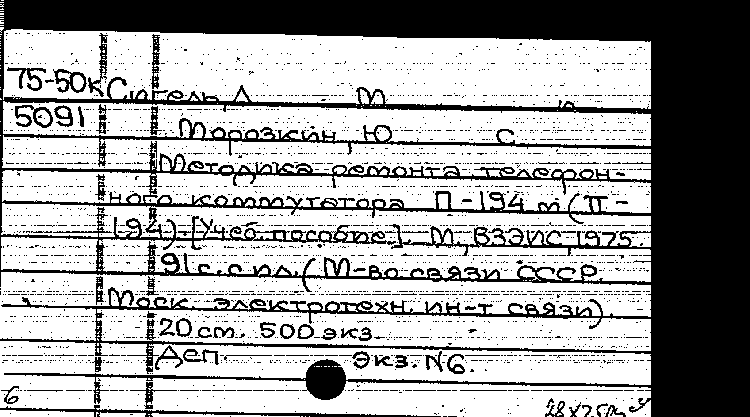 75-50к Сигель, Д М
5091 Морозкин, Ю С
Методика ремонта телефон-
ного коммутатора П-194 м (П-
194). [Учеб. пособие]. М., ВЗЭИС, 1975.
91 с. с ил. (М-во связи СССР.
Моск. электротехн. ин-т связи).
20 см. 500 экз.
Деп. Экз. N6.
6